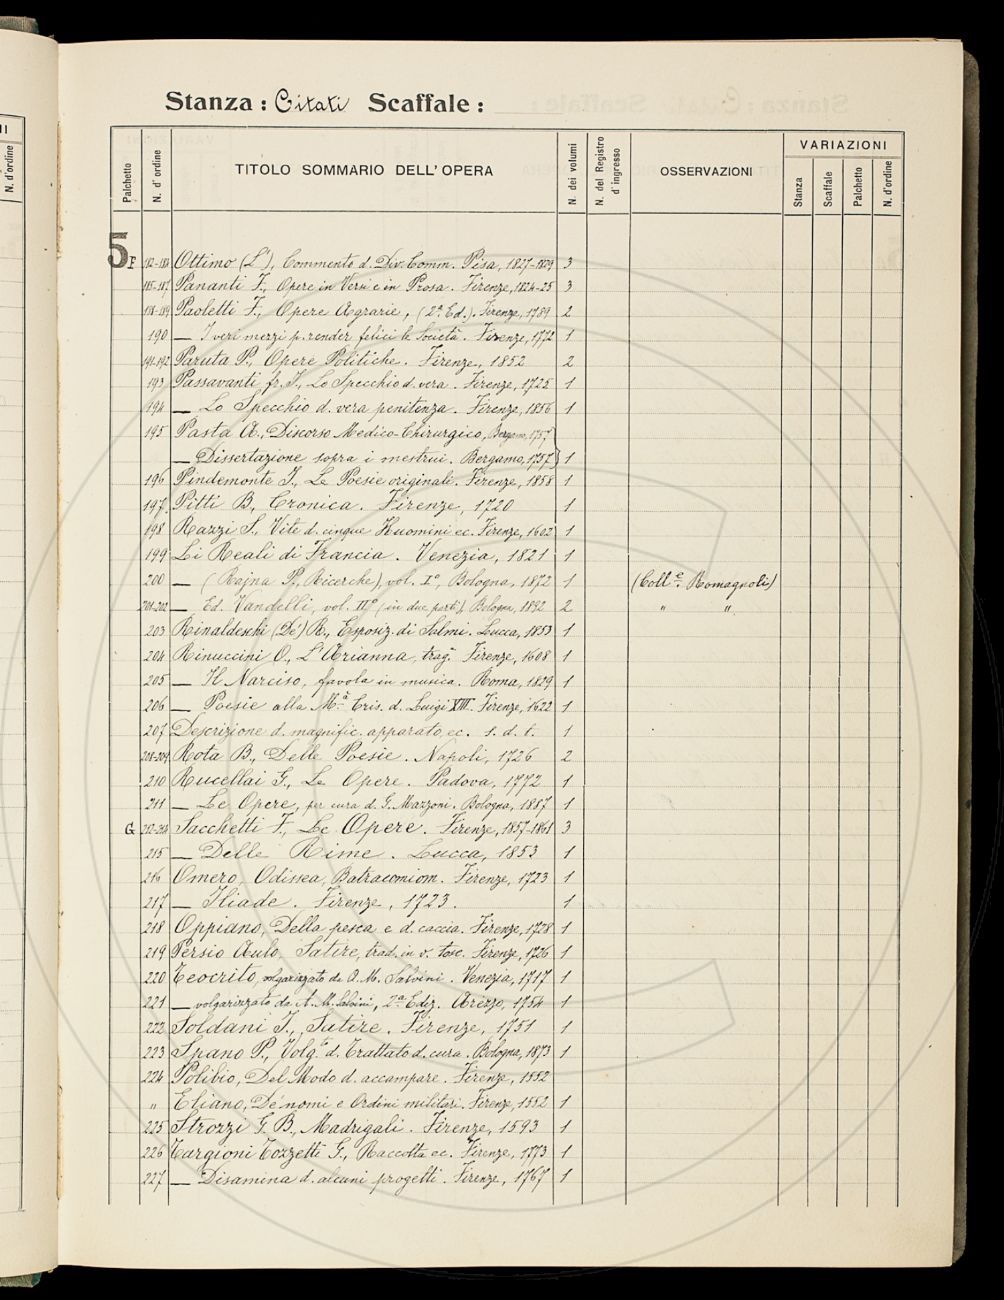 Stanza: Citati Scaffale:
Palchetto N. d'ordine TITOLO SOMMARIO DELL'OPERA N. dei volumi N. del Registro d'ingresso OSSERVAZIONI VARIAZIONI
Stanza Scaffale Palchetto N. d'ordine
5 F 182-184 Ottimo (L'), Commento d. Div. Comm. Pisa, 1827-1829 3
185-187 Pananti F., Opere in Versi e in Prosa. Firenze, 1824-25 3
188-189 Paoletti F., Opere Agrarie, (2ª Ed.). Firenze, 1789 2
190 — I veri mezzi p. render felici le Società. Firenze, 1772 1
191-192 Paruta P., Opere Politiche. Firenze, 1852 2
193 Passavanti fr. J., Lo Specchio d. vera. Firenze, 1725 1
194 — Lo Specchio d. vera penitenza. Firenze, 1856 1
195 Pasta A., Discorso Medico-Chirurgico, Bergamo, 1757
— Dissertazione sopra i mestrui. Bergamo, 1757 1
196 Pindemonte I., Le Poesie originali. Firenze, 1858 1
197 Pitti B., Cronica. Firenze, 1720 1
198 Razzi S., Vite d. cinque Huomini ec. Firenze, 1602 1
199 Li Reali di Francia. Venezia, 1821 1
200 — (Rajna P., Ricerche), vol. I°, Bologna, 1872 1 (Coll.e Romagnoli)
201-202 — Ed. Vandelli, vol. II° (in due parti), Bologna, 1892 2 " "
203 Rinaldeschi (De') R., Esposiz. di Salmi. Lucca, 1853 1
204 Rinuccini O., L'Arianna, trag. Firenze, 1608 1
205 — Il Narciso, favola in musica. Roma, 1829 1
206 — Poesie alla M.à Cris. d. Luigi XIII. Firenze, 1622 1
207 Descrizione d. magnific. apparato, ec. s. d. t. 1
208-209 Rota B., Delle Poesie. Napoli, 1726 2
210 Rucellai G., Le Opere. Padova, 1772 1
211 — Le Opere, per cura d. G. Mazzoni. Bologna, 1887 1
G 212-214 Sacchetti F., Le Opere. Firenze, 1857-1861 3
215 — Delle Rime. Lucca, 1853 1
216 Omero, Odissea, Batracomiom. Firenze, 1723 1
217 — Iliade. Firenze, 1723. 1
218 Oppiano, Della pesca e d. caccia. Firenze, 1728 1
219 Persio Aulo, Satire, trad. in v. tosc. Firenze, 1726 1
220 Teocrito, volgarizzato da A. M. Salvini. Venezia, 1717 1
221 — volgarizzato da A. M. Salvini, 2ª Ediz. Arezzo, 1754 1
222 Soldani J., Satire. Firenze, 1751 1
223 Spano P., Volg.to d. Trattato d. cura. Bologna, 1873 1
224 Polibio, Del Modo d. accampare. Firenze, 1552
" Eliano, De' nomi e Ordini militari, Firenze, 1552 1
225 Strozzi G. B., Madrigali. Firenze, 1593 1
226 Targioni Tozzetti G., Raccolta ec. Firenze, 1773 1
227 — Disamina d. alcuni progetti. Firenze, 1767 1
II
N. d'ordine